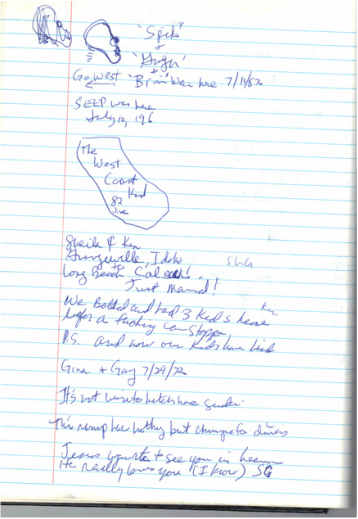 'Spike'
+
Go West 'Brian' was here 7/11/82
SEEP was here
July 12, 196
The
West
Coast
Kid
82
Jive
Sheila & Ken
Grangeville, Idaho
to
Long Beach
Just Married!
We and had 3 Kids here
before a fucking Car Stopper
P.S. and now our Kids have kids
Gina + Gary 7/29/72
It's not wise to hitch here
This ramp has nothing but change for diners
Jesus wants to see you in heaven
He really loves you (I know) SG